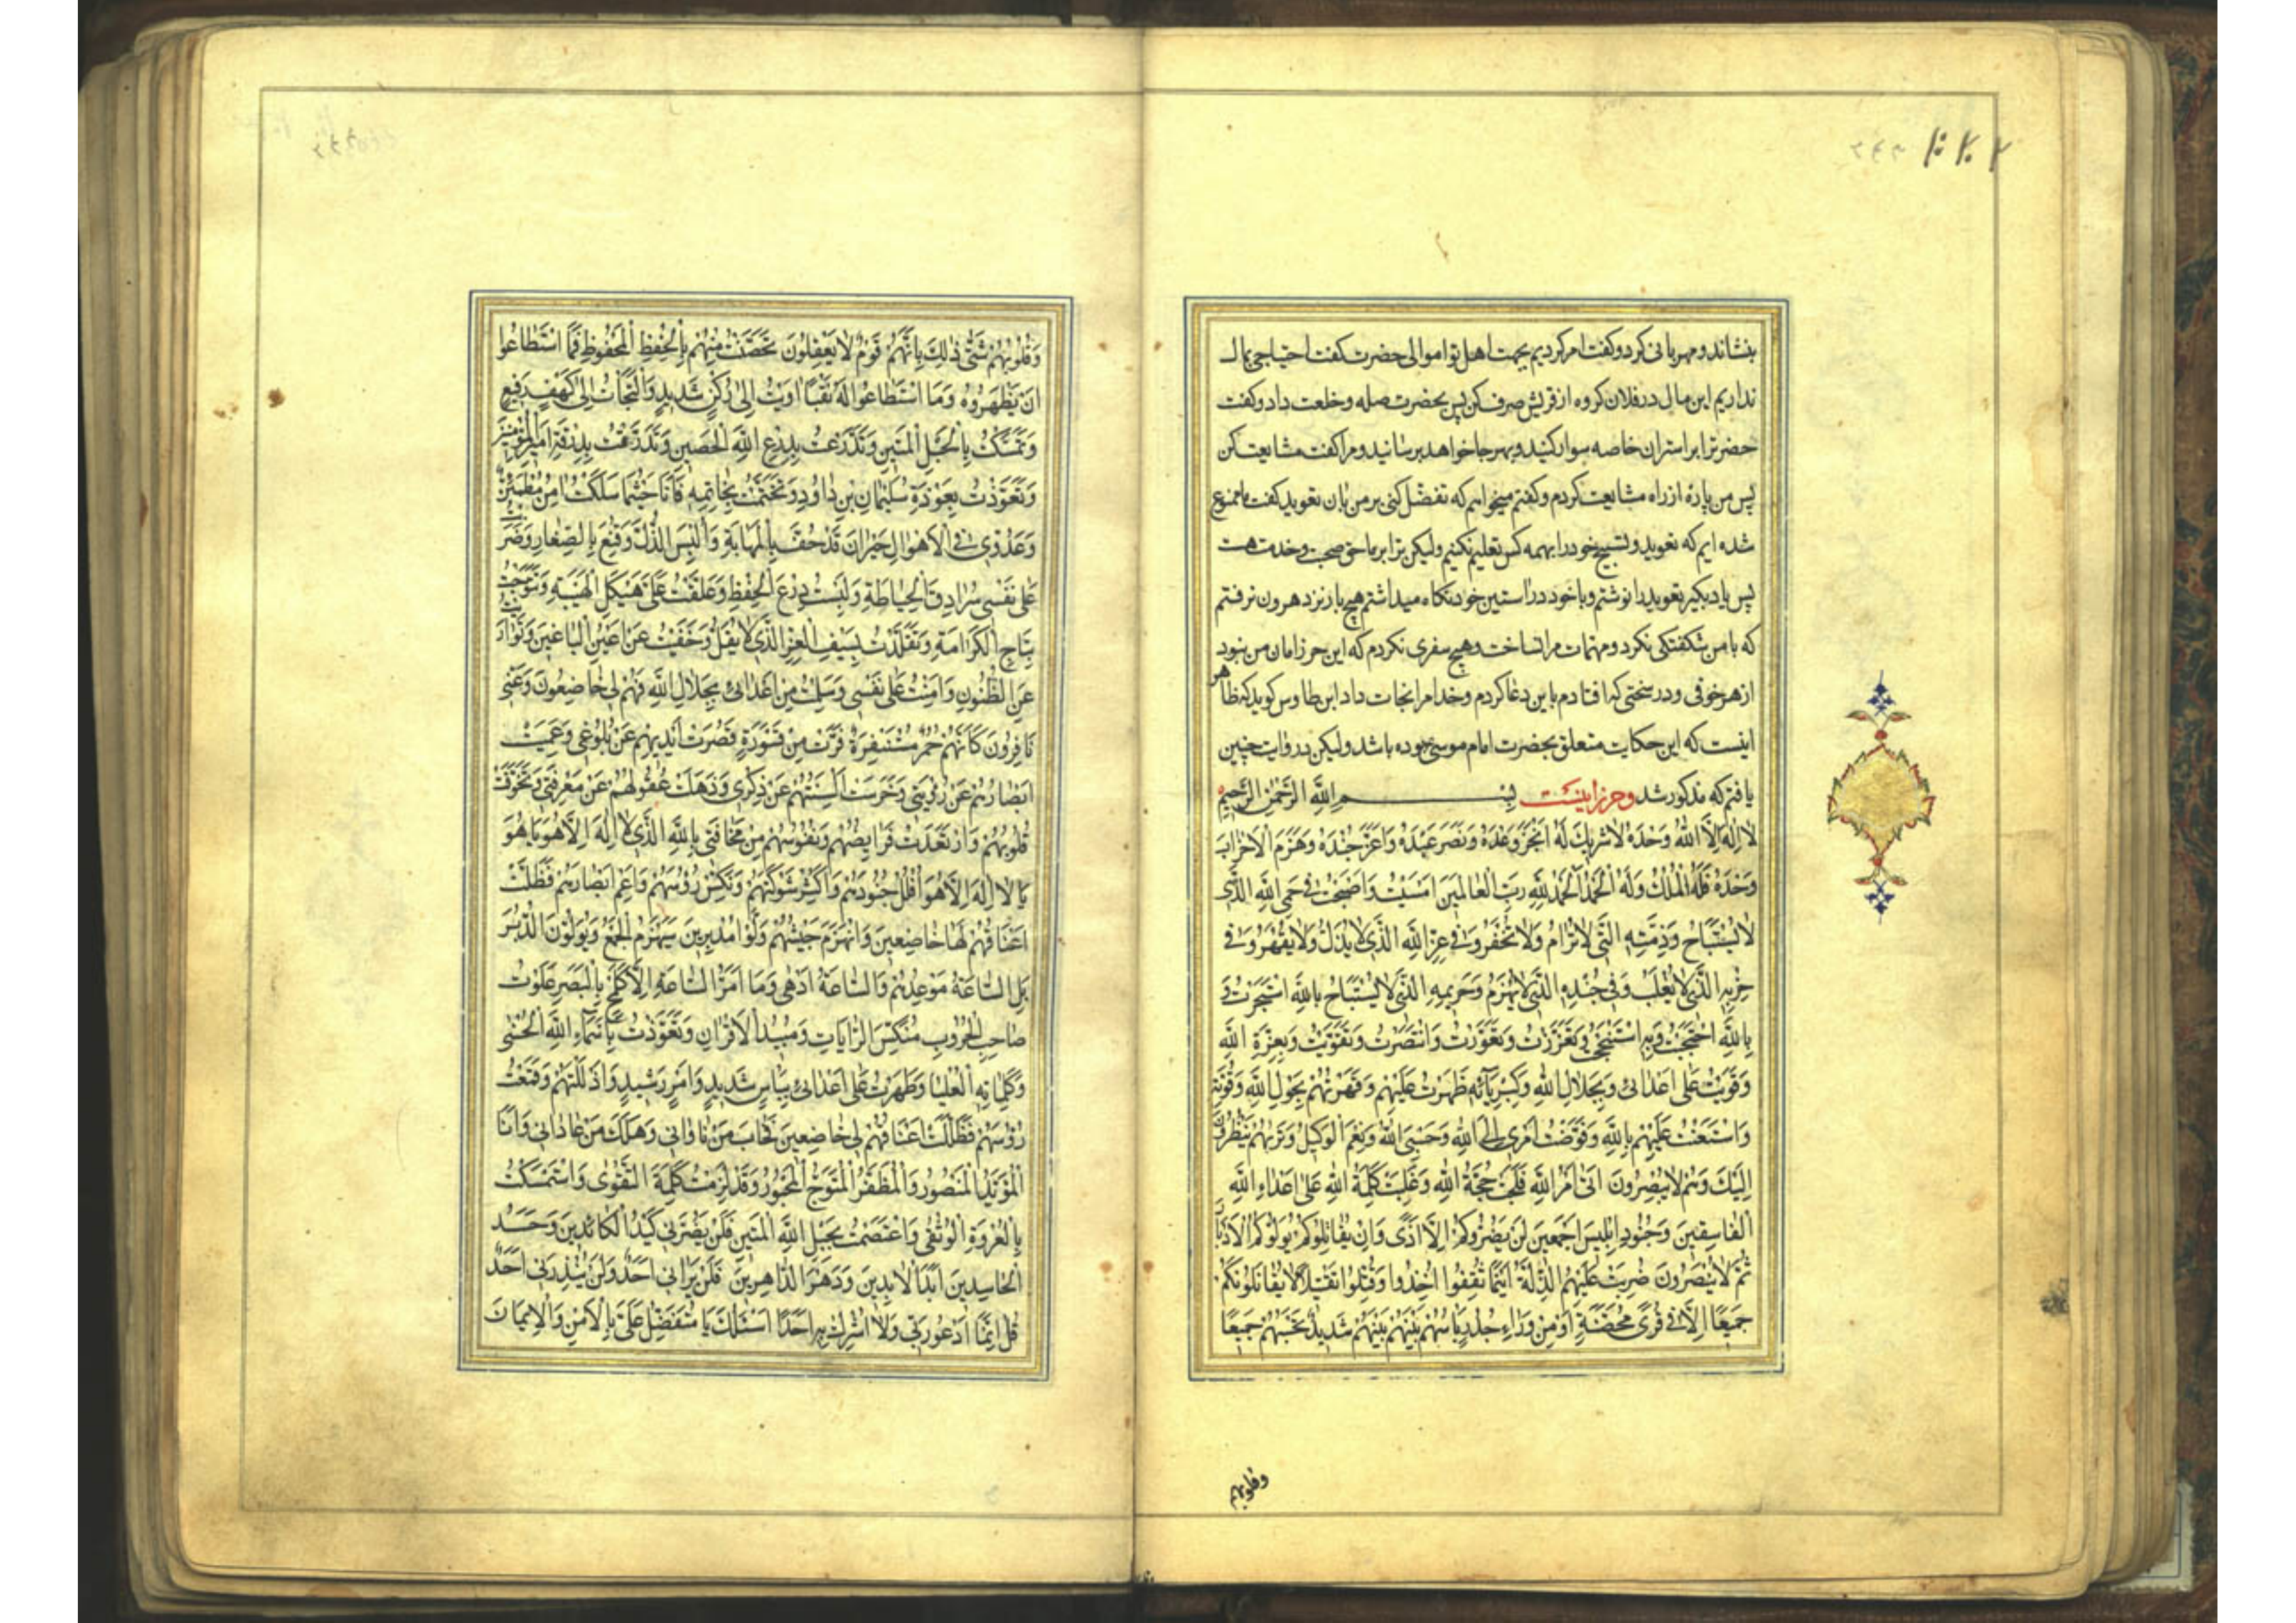 بنشاند و مهربانی کرد و کفت امر کردیم بجهت اهل تو اموالی حضرت کفت احتیاجی بمال
نداریم این مال در فلان کروه از قریش صرف کن پس بحضرت صله و خلعت داد و کفت
حضرترا بر استران خاصه سوار کنید و بهر جا خواهد برسانید و مرا کفت مشایعت کن
پس من پارهٔ از راه مشایعت کردم و کفتم میخواهم که تفضل کنی بر من بان تعوید کفت ما ممنوع
شده ایم که تعوید و تسبیح خود را بهمه کس تعلیم نکنیم ولیکن ترا بر ما حق صحبت و خدمت هست
پس یاد بکیر تعوید را نوشتم و با خود در استین خود نکاه میداشتم هیچ بار نزد هرون نرفتم
که با من شکفتکی نکرد و مهمات مرا نساخت و هیچ سفری نکردم که این حرز امان من نبود
از هر خوفی و در سختی که افتادم باین دعا کردم و خدا مرا نجات داد ابن طاوس کوید که ظاهر
اینست که این حکایت متعلق بحضرت امام موسی بوده باشد ولیکن در روایت چنین
یافتم که مذکور شد و حرز اینست بِسْمِ اللهِ الرَّحْمٰنِ الرَّحِیمِ
لا اِلٰهَ اِلَّا اللهُ وَحْدَهُ لا شَرِیكَ لَهُ اَنْجَزَ وَعْدَهُ وَنَصَرَ عَبْدَهُ وَاَعَزَّ جُنْدَهُ وَهَزَمَ الْاَحْزٰابَ
وَحْدَهُ فَلَهُ الْمُلْكُ وَلَهُ الْحَمْدُ اَلْحَمْدُ لِلّٰهِ رَبِّ الْعٰالَمِینَ اَمْسَیْتُ وَاَصْبَحْتُ فی حِمَی اللهِ الَّذی
لا یُسْتَبٰاحُ وَذِمَّتِهِ الَّتی لا تُرٰامُ وَلا تُخْفَرُ وَفی عِزِّ اللهِ الَّذی لا یُذَلُّ وَلا یُقْهَرُ وَفی
حِزْبِهِ الَّذی لا یُغْلَبُ وَفی جُنْدِهِ الَّذی لا یُهْزَمُ وَحَرِیمِهِ الَّذی لا یُسْتَبٰاحُ بِاللهِ اسْتَجَرْتُ وَ
بِاللهِ احْتَجَبْتُ وَبِهِ اسْتَنْجَحْتُ وَتَعَزَّزْتُ وَتَعَوَّذْتُ وَانْتَصَرْتُ وَتَقَوَّیْتُ وَبِعِزَّةِ اللهِ
وَقَوِیتُ عَلیٰ اَعْدٰائی وَبِجَلالِ اللهِ وَکِبْرِیٰآئِهِ ظَهَرْتُ عَلَیْهِمْ وَقَهَرْتُهُمْ بِحَوْلِ اللهِ وَقُوَّتِهِ
وَاسْتَعَنْتُ عَلَیْهِمْ بِاللهِ وَفَوَّضْتُ اَمْری اِلَی اللهِ وَحَسْبِیَ اللهُ وَنِعْمَ الْوَکِیلُ وَتَرٰیهُمْ یَنْظُرُونَ
اِلَیْكَ وَهُمْ لا یُبْصِرُونَ اَتیٰ اَمْرُ اللهِ فَلَجَتْ حُجَّةُ اللهِ وَغَلَبَتْ کَلِمَةُ اللهِ عَلیٰ اَعْدٰاءِ اللهِ
الْفٰاسِقِینَ وَجُنُودِ اِبْلِیسَ اَجْمَعِینَ لَنْ یَضُرُّوکُمْ اِلَّا اَذًی وَاِنْ یُقٰاتِلُوکُمْ یُوَلُّوکُمُ الْاَدْبٰارَ
ثُمَّ لا یُنْصَرُونَ ضُرِبَتْ عَلَیْهِمُ الذِّلَّةُ اَیْنَمٰا ثُقِفُوا اُخِذُوا وَقُتِّلُوا تَقْتِیلًا لا یُقٰاتِلُونَکُمْ
جَمِیعًا اِلَّا فی قُرًی مُحَصَّنَةٍ اَوْ مِنْ وَرٰاءِ جُدُرٍ بَاْسُهُمْ بَیْنَهُمْ شَدِیدٌ تَحْسَبُهُمْ جَمِیعًا
وقلوبهم
وَقُلُوبُهُمْ شَتّیٰ ذٰلِكَ بِاَنَّهُمْ قَوْمٌ لا یَعْقِلُونَ تَحَصَّنْتُ مِنْهُمْ بِالْحِفْظِ الْمَحْفُوظِ فَمَا اسْتَطٰاعُوا
اَنْ یَظْهَرُوهُ وَمَا اسْتَطٰاعُوا لَهُ نَقْبًا اٰوَیْتُ اِلیٰ رُکْنٍ شَدِیدٍ وَالْتَجَأْتُ اِلیٰ کَهْفٍ رَفِیعٍ
وَتَمَسَّکْتُ بِالْحَبْلِ الْمَتِینِ وَتَدَرَّعْتُ بِدِرْعِ اللهِ الْحَصِینِ وَتَدَرَّقْتُ بِدَرَقَةِ اَمِیرِ الْمُؤْمِنِینَ
وَتَعَوَّذْتُ بِعَوْذَةِ سُلَیْمٰانَ بْنِ دٰاوُدَ وَتَخَتَّمْتُ بِخٰاتَمِهِ فَاَنَا حَیْثُمٰا سَلَکْتُ اٰمِنٌ مُطْمَئِنٌّ
وَعَدُوّی فی الْاَهْوٰالِ حَیْرٰانُ قَدْ حُفَّ بِالْمَهٰابَةِ وَاُلْبِسَ الذُّلَّ وَقُنِّعَ بِالصَّغٰارِ وَضَرَبْتُ
عَلیٰ نَفْسی سُرٰادِقَ الْحِیٰاطَةِ وَلَبِسْتُ دِرْعَ الْحِفْظِ وَعَلَّقْتُ عَلَیَّ هَیْکَلَ الْهَیْبَةِ وَتَتَوَّجْتُ
بِتٰاجِ الْکَرٰامَةِ وَتَقَلَّدْتُ بِسَیْفِ الْعِزِّ الَّذی لا یُفَلُّ وَخَفِیتُ عَنْ اَعْیُنِ الْبٰاغِینَ وَتَوٰارَیْتُ
عَنِ الظُّنُونِ وَاَمِنْتُ عَلیٰ نَفْسی وَسَلِمْتُ مِنْ اَعْدٰائی بِجَلالِ اللهِ فَهُمْ لی خٰاضِعُونَ وَعَنّی
نٰافِرُونَ کَاَنَّهُمْ حُمُرٌ مُسْتَنْفِرَةٌ فَرَّتْ مِنْ قَسْوَرَةٍ قَصُرَتْ اَیْدِیهِمْ عَنْ بُلُوغی وَعَمِیَتْ
اَبْصٰارُهُمْ عَنْ رُؤْیَتی وَخَرِسَتْ اَلْسِنَتُهُمْ عَنْ ذِکْری وَذَهَلَتْ عُقُولُهُمْ عَنْ مَعْرِفَتی وَتَخَوَّفَتْ
قُلُوبُهُمْ وَارْتَعَدَتْ فَرٰایِصُهُمْ وَنُفُوسُهُمْ مِنْ مَخٰافَتی بِاللهِ الَّذی لا اِلٰهَ اِلَّا هُوَ یٰا هُوَ
یٰا لا اِلٰهَ اِلَّا هُوَ اُفْلُلْ جُنُودَهُمْ وَاکْسِرْ شَوْکَتَهُمْ وَنَکِّسْ رُؤُسَهُمْ وَاَعْمِ اَبْصٰارَهُمْ فَظَلَّتْ
اَعْنٰاقُهُمْ لَهٰا خٰاضِعِینَ وَانْهَزَمَ جَیْشُهُمْ وَلَّوْا مُدْبِرِینَ سَیُهْزَمُ الْجَمْعُ وَیُوَلُّونَ الدُّبُرَ
بَلِ السّٰاعَةُ مَوْعِدُهُمْ وَالسّٰاعَةُ اَدْهیٰ وَمٰا اَمْرُ السّٰاعَةِ اِلَّا کَلَمْحٍ بِالْبَصَرِ عَلَوْتُ
صٰاحِبِ الْحُرُوبِ مُنَکِّسِ الرّٰایٰاتِ وَمُبِیدِ الْاَقْرٰانِ وَتَعَوَّذْتُ بِاَسْمٰآءِ اللهِ الْحُسْنیٰ
وَکَلِمٰاتِهِ الْعُلْیٰا وَظَهَرْتُ عَلیٰ اَعْدٰائی بِبَاْسٍ شَدِیدٍ وَاَمْرٍ رَشِیدٍ وَاَذْلَلْتُهُمْ وَقَمَعْتُ
رُؤُسَهُمْ فَظَلَّتْ اَعْنٰاقُهُمْ لی خٰاضِعِینَ فَخٰابَ مَنْ نٰاوٰانی وَهَلَكَ مَنْ عٰادٰانی وَاَنَا
الْمُؤَیَّدُ الْمَنْصُورُ وَالْمُظَفَّرُ الْمُتَوَّجُ الْمَحْبُورُ وَقَدْ لَزِمْتُ کَلِمَةَ التَّقْویٰ وَاسْتَمْسَکْتُ
بِالْعُرْوَةِ الْوُثْقیٰ وَاعْتَصَمْتُ بِحَبْلِ اللهِ الْمَتِینِ فَلَنْ یَضُرَّنی کَیْدُ الْکٰائِدِینَ وَحَسَدُ
الْحٰاسِدِینَ اَبَدَ الْاٰبِدِینَ وَدَهْرَ الدّٰاهِرِینَ فَلَنْ یَرٰانی اَحَدٌ وَلَنْ یُنْذِرَنی اَحَدٌ
قُلْ اِنَّمٰا اَدْعُو رَبّی وَلا اُشْرِكُ بِهِ اَحَدًا اَسْئَلُكَ یٰا مُتَفَضِّلُ عَلَیَّ بِالْاَمْنِ وَالْاِیمٰانِ